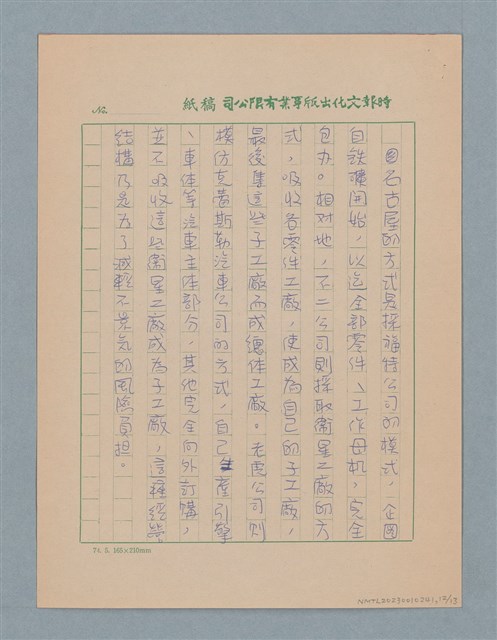 時報文化出版事業有限公司 稿紙
No.
名古屋的方式是採福特公司的模式,企図
自鉄礦開始,以迄全部零件、工作母机,完全
包办。相対地,不二公司則採取衛星工廠的方
式,吸收各零件工廠,使成為自己的子工廠,
最後集這些子工廠而成總体工廠。老虎公司則
模仿克萊斯勒汽車公司的方式,自己生產引擎
、車体等汽車主体部分,其他完全向外訂購,
並不吸收這些衛星工廠成為子工廠,這種經營
結構乃是為了減輕不景気的風險負担。
74. 5. 165×210mm
NMTL20230010241, 12/13